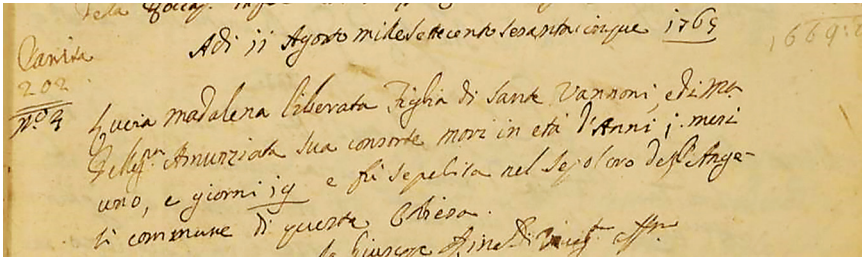 Adi 11 Agosto mille settecento sesanta cinque 1765
202
N.o 4
Lucia Madalena Liberata Figlia di Sante Vannoni, e di Ma
Pelleg.na Anunziata sua consorte morì in età d'Anni 1. mesi
uno, e giorni 19 e fù sepelita nel sepolcro degl'Ange=
li commune di questa Chiesa.